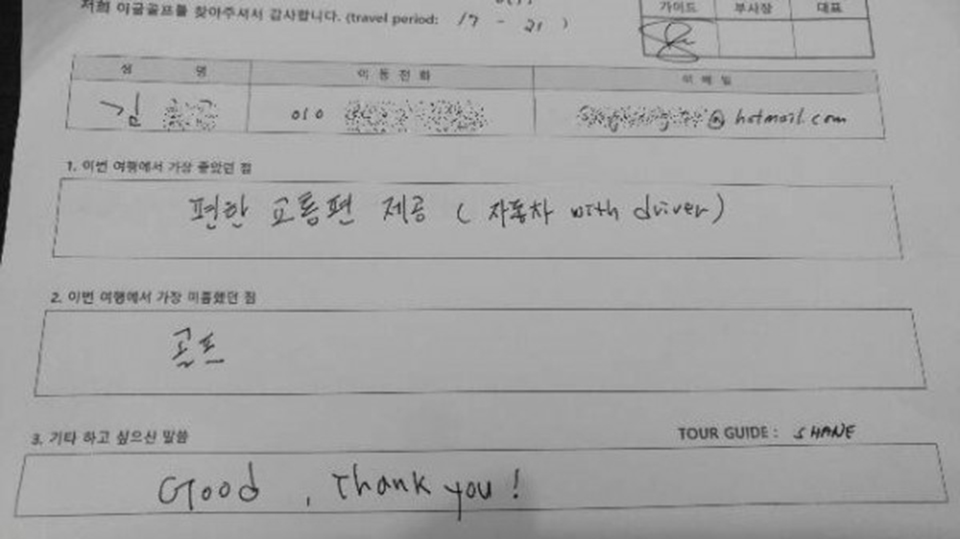 저희 이글골프를 찾아주셔서 감사합니다. (travel period: 17 - 21 )
가이드 부사장 대표
성 명 이 동 전 화 이 메 일
김 010 @ hotmail.com
1. 이번 여행에서 가장 좋았던 점
편한 교통편 제공 ( 자동차 with driver )
2. 이번 여행에서 가장 미흡했던 점
골프
3. 기타 하고 싶으신 말씀 TOUR GUIDE : SHANE
Good , Thank you !